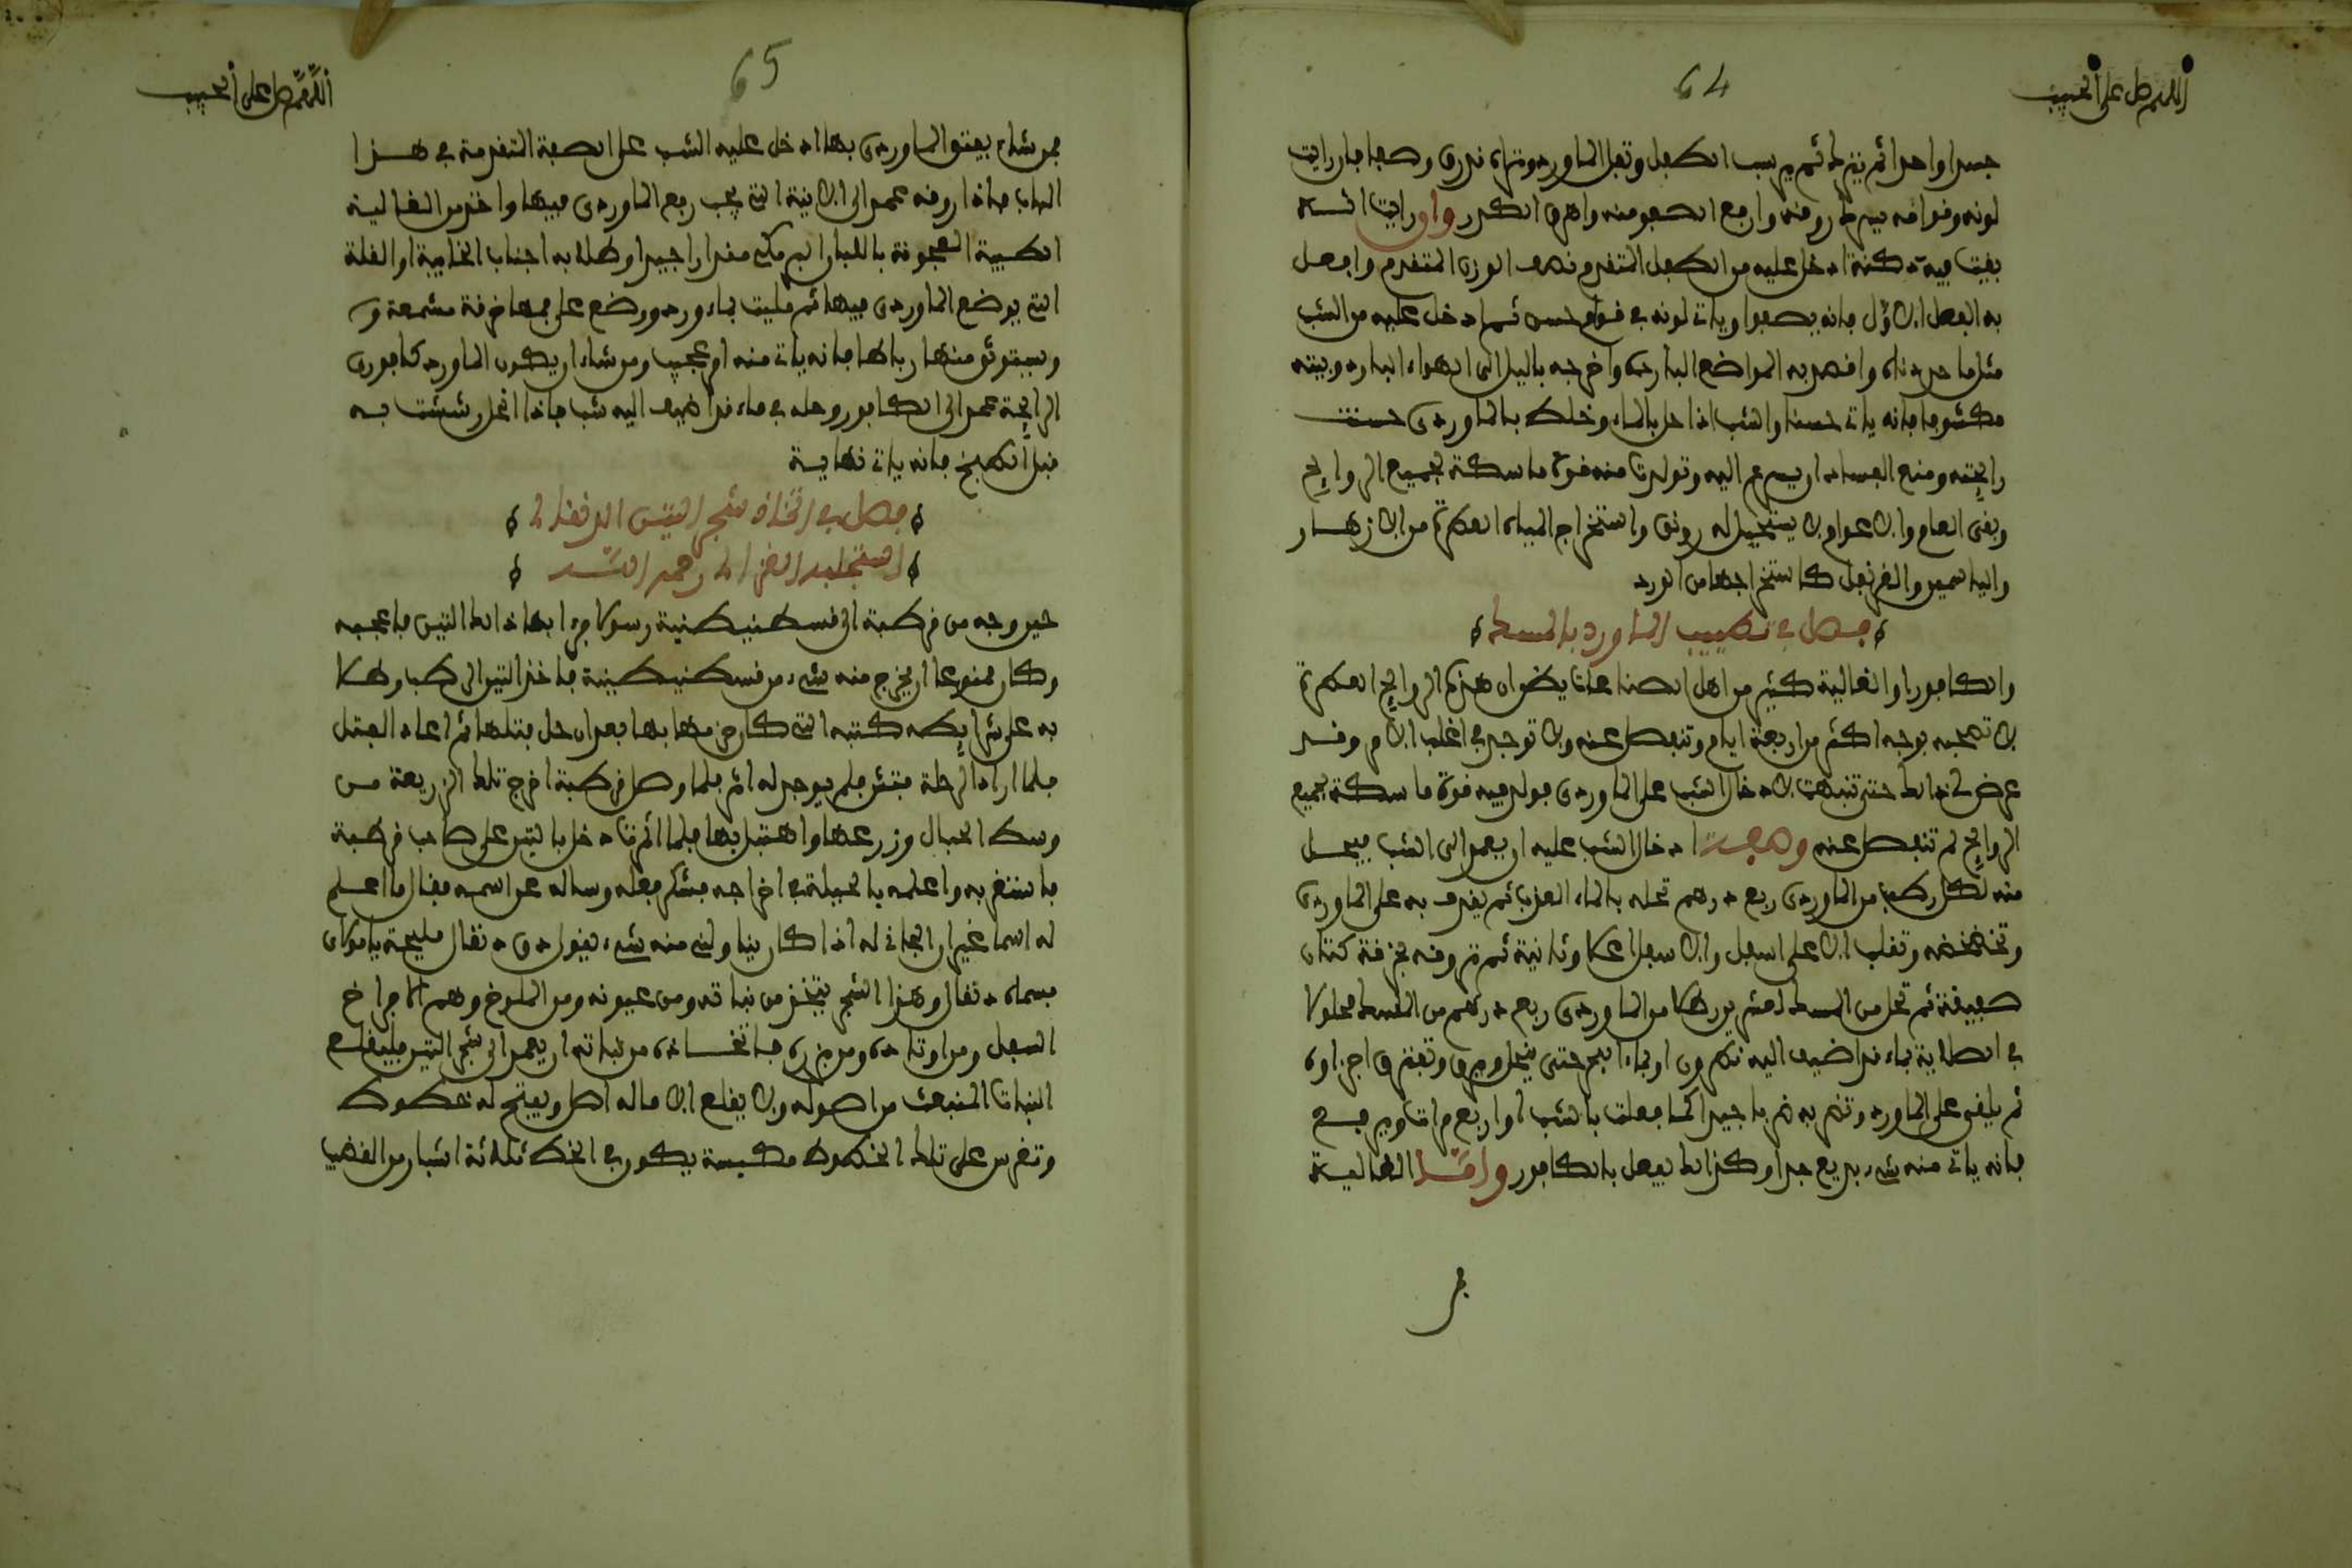 64
اللهم صل على الحبيب
جسدا واحدا ثم يترك ثم يرسب الطفل وتعل الماورد وتراه قدرق وصفا فان رايت
لونه وقوامه يسرك روقه وارفع الصفو منه واهرق الكدر وان رايت انـــه
بقيت فيه دكنة ادخل عليه من الطفل المتقدم نصف الوزن المتقدم وافعل
به الفعل الاول فانه يصفوا وياتى لونه في قوام حسن ثم ادخل عليه من الشب
مثل ما حددناه واقصد به المواضع الباردة واخرجه بالليل الى الهواء البارد وبيته
مكشوفا فانه ياتى حسنا والشب اذا حل بالماء وخلط بالماوردى حسنت
رايحته ومنع الفساد ان يسرع اليه وتولدت منه قوة ماسكة لجميع الروايح
وبقى العام والاعوام لا يستحيل له رونق واستخراج المياه العطرة من الازهــار
والياسمين والقرنفل كاستخراجها من الورد
فصل في تطييب الماورد بالمسك
والكافور او الغالية كثير من اهل الصناعات يظنوا ان هذه الروايح العطرة
لا تصحبه بوجه اكثر من اربعة ايام وتنفصل عنه ولا توجد في اغلب الامر وقــد
عرض لي ذالك حتى تنبهت لادخال الشب على الماوردى فولد فيه قوة ماسكة لجميع
الروايح لم تنفصل عنه وصفــة ادخال الشب عليه ان يعمد الى الشب فيجعــل
منه لكل رطل من الماوردى ربع درهم تحله بالماء العذب ثم يغرف به على الماوردى
وتخضخضه وتقلب الاعلى اسفل والاسفل اعلا وثانية ثم تروقه بخرقة كتان
صفيقة ثم تحل من المسك لعشرين رطلا من الماوردى ربع درهم من المسك محلولا
في الصلاية بماء قد اضيف اليه نطرون او بماء الفجر حتى ينحل ويرق وتفترق اجزاوه
ثم يلقى على الماورد وتضربه ضربا جيدا كما فعلت بالشب او اربع مرات ويرفــع
فانه ياتى منه شىء بديع جدا وكذالك يفعل بالكافور وامــا الغاليــة
فمن
65
اللهم صل على الحبيب
فمن شاء يفتق الماوردى بها ادخل عليه الشب على الصفة المتقدمة في هــذا
الباب فاذا روقه عمد الى الانية التي يجب رفع الماوردى فيها واخذ من الغاليــة
الطيبة المعجونة باللبان مقدارا جيدا وطلا به اجناب الخابية او القلة
التي يوضع الماوردى فيها ثم مليت بماء ورد ووضع على فمها خرقة مشمعة
ويستوثق منها رباطها فانه ياتى منه امر عجيب ومن شاء ان يكون الماورد كافورى
الرايحة عمد الى الكافور وحله في ماء قد اضيف اليه شب فاذا انحل رششت بــه
قبل الطبخ فانه ياتى نهايــة
فصل في اتخاذ شجر التين الدنقالى
استجلبه الغزالى رحمه الله
حين وجه من قرطبة الى قسطنيطنية رسولا فرءا بها ذالك التين فاعجبه
وكان ممنوعا ان يخرج منه شىء من قسطنيطينية فاخذ التين الرطب وطلا
به على شرايط كتبه التي كان حزمها بها بعد ان حل فتلها ثم اعاد الفتل
فلما اراد الرحلة فتش فلم يوجد له اثر فلما وصل قرطبة اخرج تلك الزريعة مــن
وسط الحبال وزرعها واهتبل بها فلما اثمرت دخل بالتين على صاحب قرطبة
فاستغربه واعلمه بالحيلة في اخراجه فشكر فعله وساله عن اسمه فقال ما اعلــم
له اسما غير ان الجاني له اذا كان يناولني منه شىء يقول دن دنقال مليحة يا مولاى
فسماه دنقال وهذا الشجر يتخذ من نباته ومن عيونه ومن الملوخ وهم الافراخ
السفل ومن اوتاده ومن بزره فاتخاذه من نباته ان يعمد الى شجر التين فليقلــع
النبات المنبعث من اصوله ولا يقلع الا ماله اصل ويفتح له خطوط
وتغرس على تلك الخطوط مطيبة يكون في الخط ثلاثة اشبار من القضيب